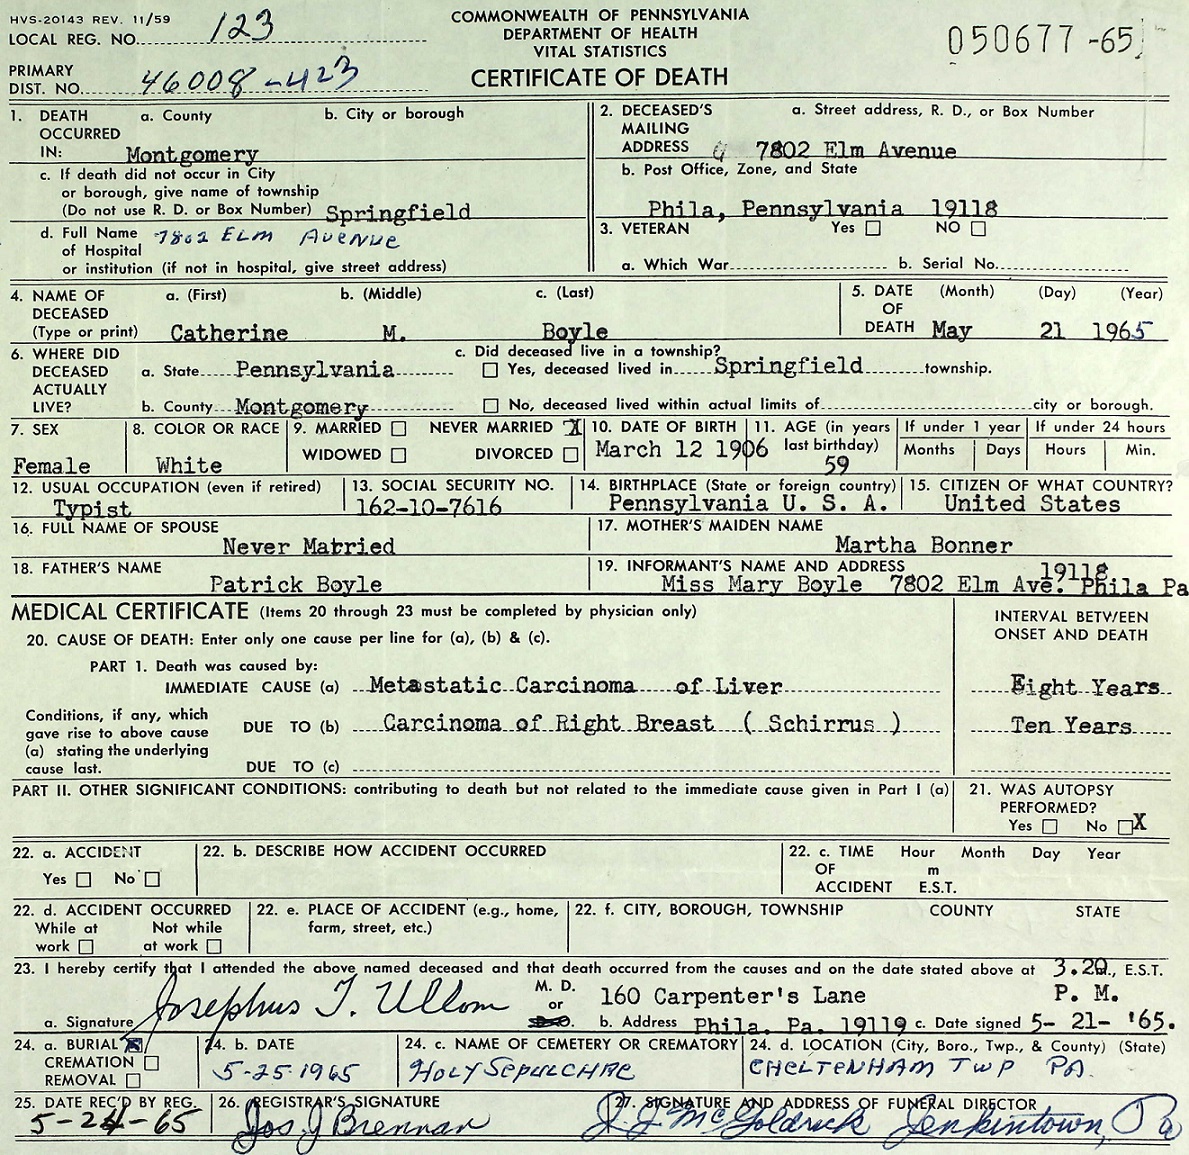 HVS-20143 REV. 11/59
LOCAL REG. NO. 123
COMMONWEALTH OF PENNSYLVANIA
DEPARTMENT OF HEALTH
VITAL STATISTICS
CERTIFICATE OF DEATH
050677-65
PRIMARY
DIST. NO. 46008-423
1. DEATH OCCURRED IN: a. County Montgomery b. City or borough
c. If death did not occur in City
or borough, give name of township
(Do not use R. D. or Box Number) Springfield
d. Full Name 7802 ELM AVENUE
of Hospital
or institution (if not in hospital, give street address)
2. DECEASED'S MAILING ADDRESS a. Street address, R. D., or Box Number
7802 Elm Avenue
b. Post Office, Zone, and State
Phila, Pennsylvania 19118
3. VETERAN Yes NO
a. Which War b. Serial No.
4. NAME OF DECEASED (Type or print) a. (First) b. (Middle) c. (Last)
Catherine M. Boyle
5. DATE OF DEATH (Month) (Day) (Year)
May 21 1965
6. WHERE DID DECEASED ACTUALLY LIVE?
a. State Pennsylvania
b. County Montgomery
c. Did deceased live in a township?
Yes, deceased lived in Springfield township.
No, deceased lived within actual limits of city or borough.
7. SEX
Female
8. COLOR OR RACE
White
9. MARRIED NEVER MARRIED X
WIDOWED DIVORCED
10. DATE OF BIRTH
March 12 1906
11. AGE (in years
last birthday)
59
If under 1 year
Months Days
If under 24 hours
Hours Min.
12. USUAL OCCUPATION (even if retired)
Typist
13. SOCIAL SECURITY NO.
162-10-7616
14. BIRTHPLACE (State or foreign country)
Pennsylvania U. S. A.
15. CITIZEN OF WHAT COUNTRY?
United States
16. FULL NAME OF SPOUSE
Never Married
17. MOTHER'S MAIDEN NAME
Martha Bonner
18. FATHER'S NAME
Patrick Boyle
19. INFORMANT'S NAME AND ADDRESS 19118
Miss Mary Boyle 7802 Elm Ave. Phila Pa
MEDICAL CERTIFICATE (Items 20 through 23 must be completed by physician only)
INTERVAL BETWEEN
ONSET AND DEATH
20. CAUSE OF DEATH: Enter only one cause per line for (a), (b) & (c).
PART 1. Death was caused by:
IMMEDIATE CAUSE (a) Metastatic Carcinoma of Liver Eight Years
Conditions, if any, which
gave rise to above cause
(a) stating the underlying
cause last.
DUE TO (b) Carcinoma of Right Breast ( Schirrus ) Ten Years
DUE TO (c)
PART II. OTHER SIGNIFICANT CONDITIONS: contributing to death but not related to the immediate cause given in Part I (a)
21. WAS AUTOPSY
PERFORMED?
Yes No X
22. a. ACCIDENT
Yes No
22. b. DESCRIBE HOW ACCIDENT OCCURRED
22. c. TIME OF ACCIDENT Hour Month Day Year
m
E.S.T.
22. d. ACCIDENT OCCURRED
While at work Not while at work
22. e. PLACE OF ACCIDENT (e.g., home,
farm, street, etc.)
22. f. CITY, BOROUGH, TOWNSHIP COUNTY STATE
23. I hereby certify that I attended the above named deceased and that death occurred from the causes and on the date stated above at 3.20 ., E.S.T.
P. M.
a. Signature Josephus T. Ullom M. D. or
160 Carpenter's Lane
b. Address Phila. Pa. 19119 c. Date signed 5- 21- '65.
24. a. BURIAL
CREMATION
REMOVAL
24. b. DATE
5-25-1965
24. c. NAME OF CEMETERY OR CREMATORY
HOLY SEPULCHRE
24. d. LOCATION (City, Boro., Twp., & County) (State)
CHELTENHAM TWP PA.
25. DATE REC'D BY REG.
5-24-65
26. REGISTRAR'S SIGNATURE
Jos. J Brennan
27. SIGNATURE AND ADDRESS OF FUNERAL DIRECTOR
J. J. McGoldrick Jenkintown, Pa